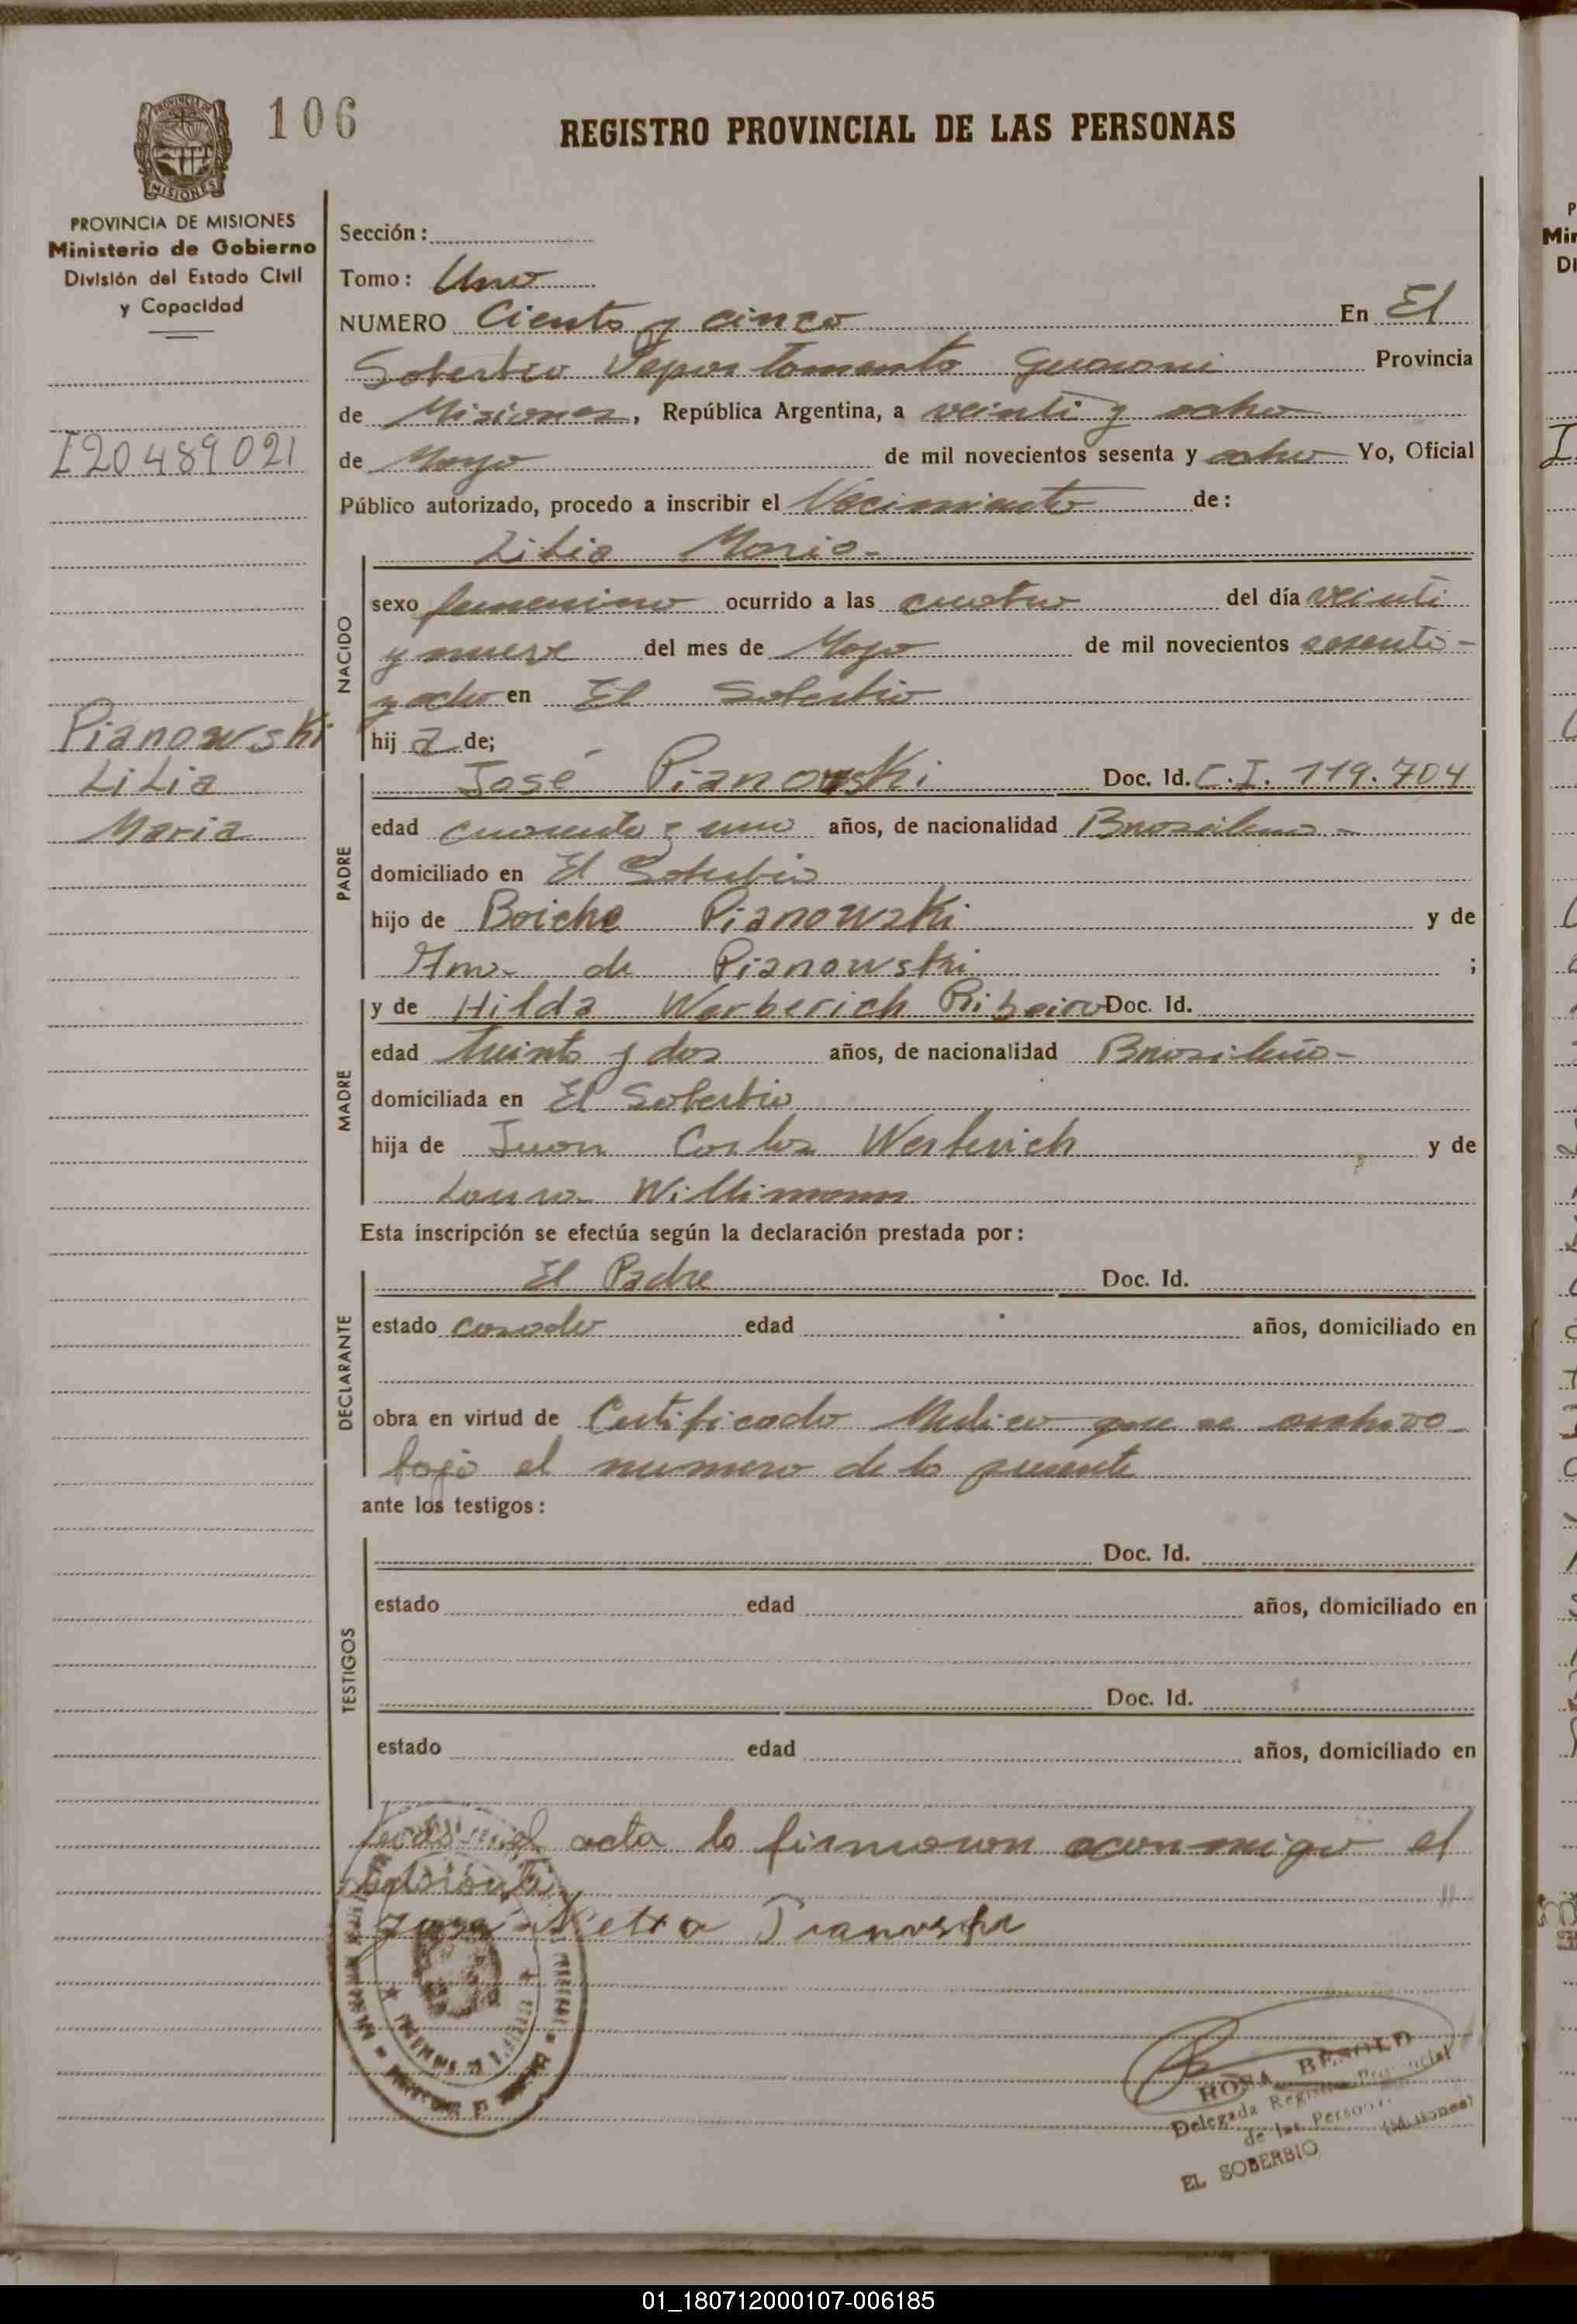 106
REGISTRO PROVINCIAL DE LAS PERSONAS
PROVINCIA DE MISIONES
Ministerio de Gobierno
División del Estado Civil
y Capacidad
I 20489021
Pianowski
Lilia
Maria
Sección:
Tomo: Uno
NUMERO Ciento y cinco En El
Soberbio Departamento Guarani Provincia
de Misiones, República Argentina, a veinti y ocho
de Mayo de mil novecientos sesenta y ocho Yo, Oficial
Público autorizado, procedo a inscribir el Nacimiento de:
Lilia Maria -
NACIDO
sexo femenino ocurrido a las cuatro del día veinti
y nueve del mes de Mayo de mil novecientos sesenta -
y ocho en El Soberbio
hij a de;
PADRE
José Pianowski Doc. Id. C.I. 119.704
edad cuarenta y uno años, de nacionalidad Brasileña -
domiciliado en El Soberbio
hijo de Boiche Pianowski y de
Ana de Pianowski ;
MADRE
y de Hilda Werberich Ribeiro Doc. Id.
edad treinta y dos años, de nacionalidad Brasileña -
domiciliada en El Soberbio
hija de Juan Carlos Werberich y de
Laura Willimann
Esta inscripción se efectúa según la declaración prestada por:
DECLARANTE
El Padre Doc. Id.
estado casado edad años, domiciliado en
obra en virtud de Certificado Medico que se archiva
bajo el numero de la presente
ante los testigos:
TESTIGOS
Doc. Id.
estado edad años, domiciliado en
Doc. Id.
estado edad años, domiciliado en
acta la firmaron conmigo el
ROSA BESOLD
Delegada Registro Provincial
de las Personas
EL SOBERBIO (Misiones)
01_180712000107-006185